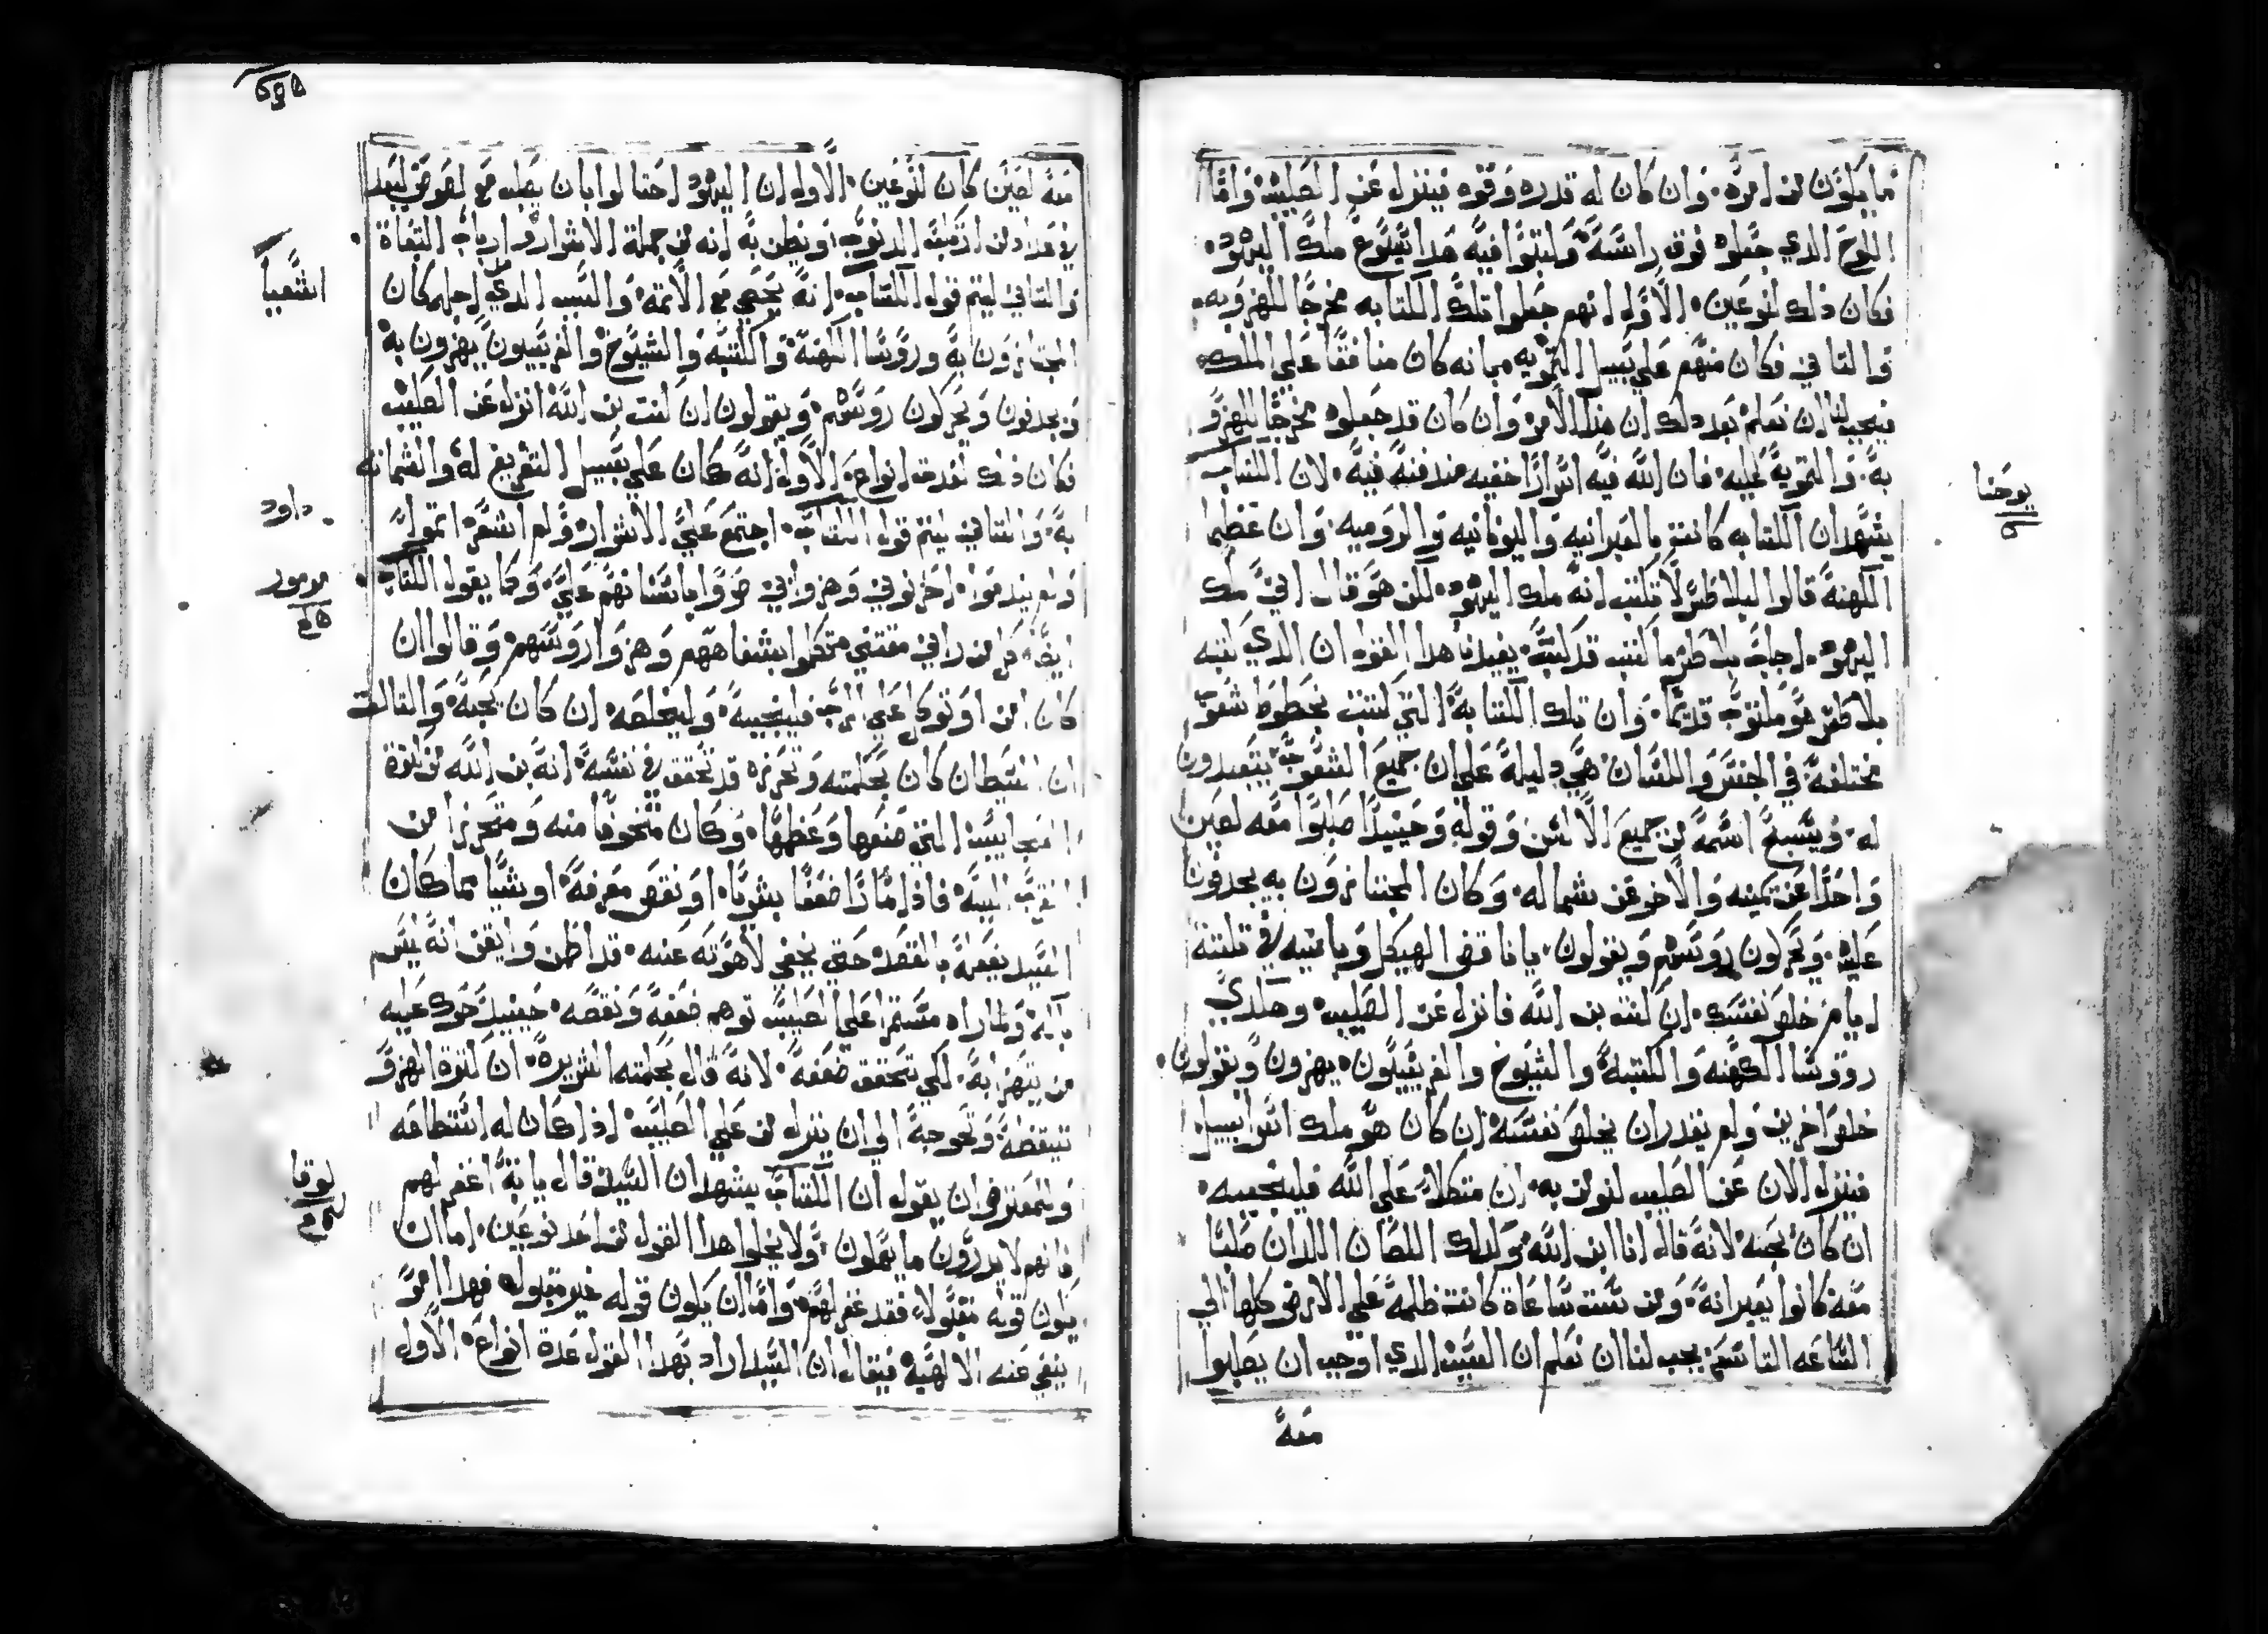 ما يكون من امره. وان كان له قدره وقوه فينزل عن الصليب. واما
اللوح الدي جعلوه فوق راسه وكتبوا فيه هدا يسوع ملك اليهود.
فكان ذلك لنوعين. الاول انهم جعلوا تلك الكتابه مخرجا للهزو به.
والتاني فكان منهم علي سبيل التمويه مبانه كان منافقا علي الملك
فيجب لنا ان نعلم بعد دلك ان هدا الامر وان كان قد جعلوه مخرجا للهزو
به. والتمويه عليه. فان الله فيه اسرارا خفيه مندفنه فيه. لان الكتاب
يشهد ان الكتابه كانت بالعبرانيه واليونانيه والروميه. وان عظما
الكهنه قالوا لبيلاطس لا تكتب انه ملك اليهود. لكن هو قال اني ملك
اليهود. اجاب بيلاطس ما كتبت قد كتبت. يفيدنا هدا القول ان الدي كتبه
بيلاطس هو مكتوب قديما. وان تلك الكتابه التي كتبت بخطوط شعوب
مختلفه في الجنس واللسان. هي دليله علي ان جميع الشعوب يتعبدون
له. ويسبح اسمه من جميع الالسن وقوله وحينيد صلبوا معه لصين
واحدا عن يمينه والاخر عن شماله. وكان المجتازون به يجدفون
عليه. ويحركون روسهم ويقولون. يا ناقض الهيكل وبانيه في تلتة
ايام خلص نفسك. ان كنت بن الله فانزل عن الصليب. وهكدي
رووسا الكهنه والكتبه والشيوخ والفريسيون. يهزون ويقولون.
خلص اخرين ولم يقدر ان يخلص نفسه. ان كان هو ملك اسراييل
فينزل الان عن الصليب لنومن به. ان متكلا علي الله فلينجيه.
ان كان يحبه. لانه قال انا ابن الله. وكدلك اللصان اللدان صلبا
معه كانوا يعيرانه. ومن ست ساعاة كانت ظلمه علي الارض كلها الي
الساعه التاسعه. يجب لنا ان نعلم ان السبب الدي اوجب ان يصلبوا
معه
يوحنا
معه لصين كان لنوعين. الاول ان اليهود احتالوا بان يصلب مع لصوص ليعد
في عداد من ارتكب الدنوب. ويظن به انه من جملة الاشرار وارباب النفاق
والتاني ليتم قول الكتاب. انه يحصي مع الاتمه. والسبب الدي اجله كان
المجتازون به وروسا الكهنه والكتبه والشيوخ والفريسيون يهزون به
ويجدفون ويحركون روسهم. ويقولون ان كنت بن الله انزل عن الصليب
فكان ذلك لعدت انواع. الاول انه كان علي سبيل التقريع له والشماته
به. والتاني ليتم قول الكتاب. اجتمع علي الاشرار ولم اشعر اتموا
ولم يندموا. احزنوني وهزوا بي صروا باسنانهم علي. وكما يقول الكتاب
ايضا كل من راني مقتني تكلموا بشفاههم وهزوا روسهم. وقالوا ان
كان امن او توكل علي الرب فلينجيه. وليخلصه. ان كان يحبه. والتالت
ان الشيطان كان بحكمته وتحرزه قد تحقق في نفسه. انه بن الله من كترة
العجايب التي صنعها وعظمها. وكان متخوفا منه ومتحرزا من
القرب اليه. فاذا ما راا ضعفا بشريا. او نقص معرفه. او شيا مما كان
السيد يفعله بالقصد. حتي يخفي لاهوته عنه. قد اظن وايقن انه ليس
باله. ولما راه مستمرا علي الصليب توهم ضعفه ونقصه. حينيد حرك عليه
من يتهزا به. لكي تتحقق ضعفه. لانه قال بحكمته الشريره. ان كترة الهزو
تيقظه وتحوجه الي ان ينزل من علي الصليب. اذا كان له استطاعه
وللمعترض ان يقول ان الكتاب يشهد ان السيد قال يا ابة اغفر لهم
فانهم لا يدرون ما يعملون. ولا يخلوا هدا القول من احد نوعين. اما ان
يكون قوله مقبولا. فقد غفر لهم. واما ان يكون قوله غير مقبول. فهدا امر
ينفي عنه الالهيه. فيقال ان السيد اراد بهدا القول عدة انواع. الاول
اشعيا
داود
مزمور
لوقا